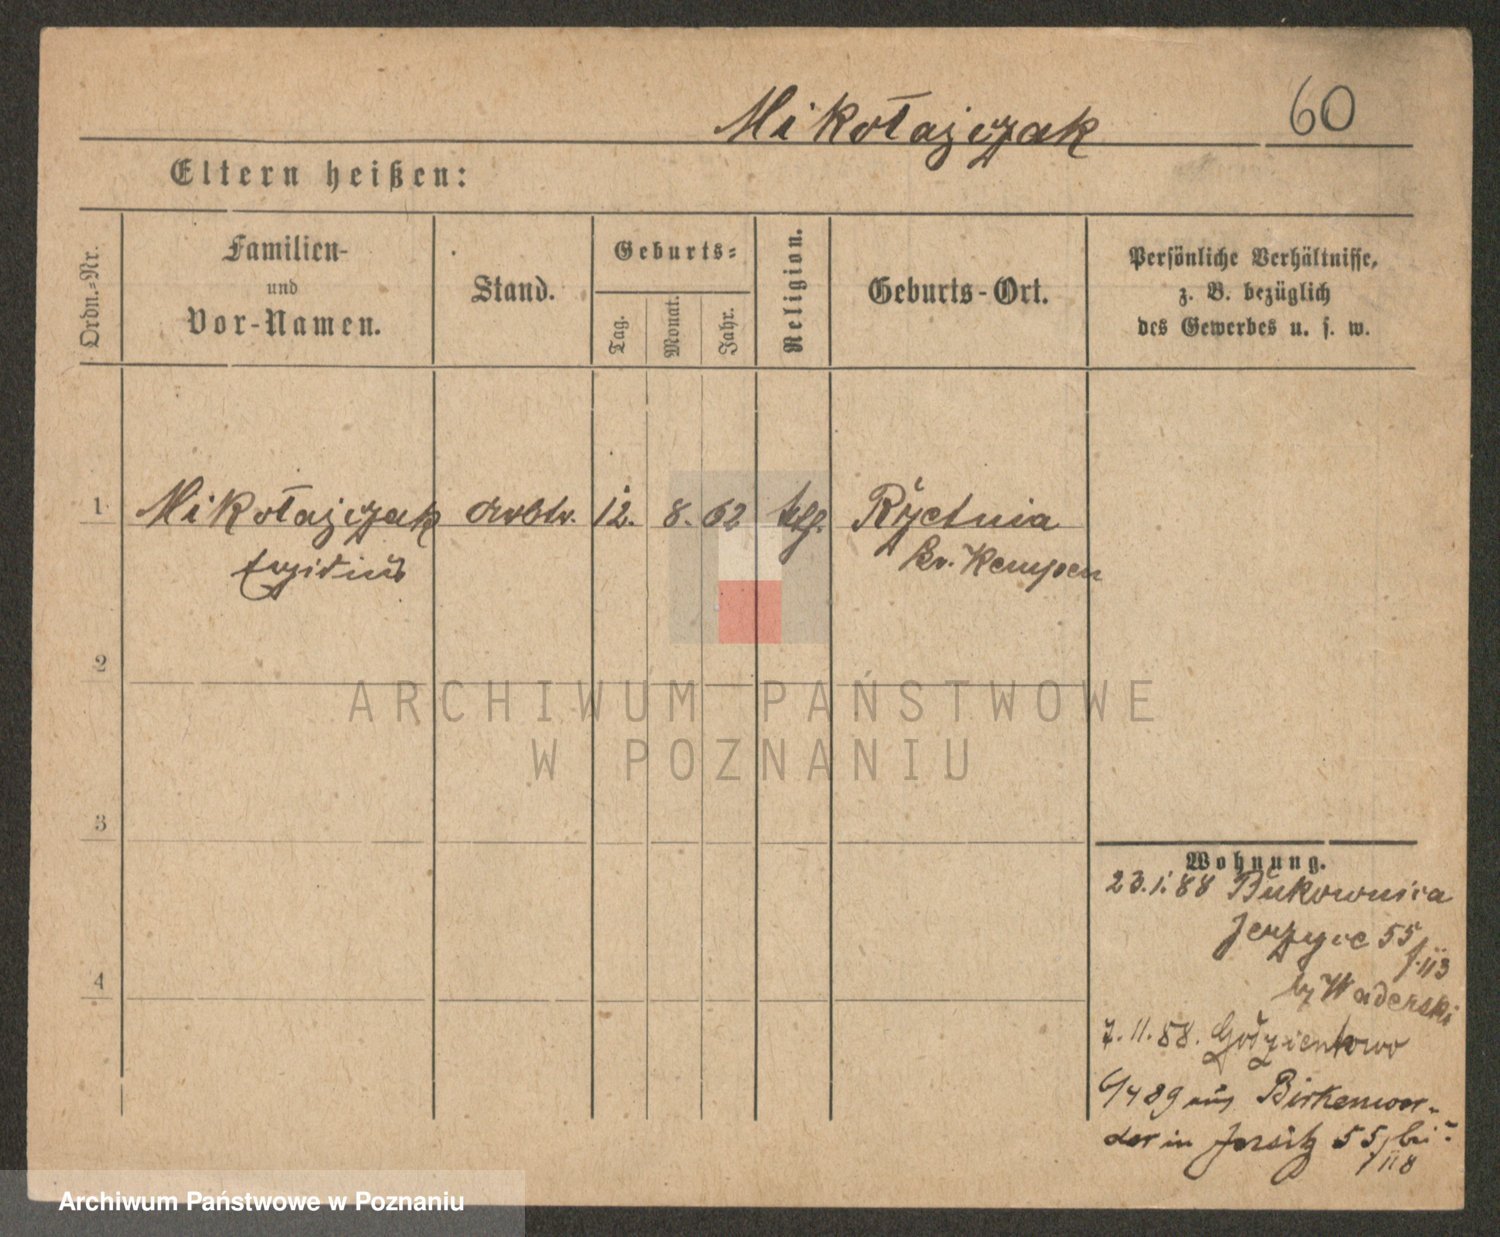 Mikołajczak 60
Eltern heißen:
Ordn.-Nr.
Familien-
und
Vor-Namen.
Stand.
Geburts-
Tag.
Monat.
Jahr.
Religion.
Geburts-Ort.
Persönliche Verhältnisse,
z. B. bezüglich
des Gewerbes u. s. w.
1. Mikołajczak Arbtr. 12. 8. 62 kth. Ryctnia
Egidius Kr. Kempen
2
ARCHIWUM PAŃSTWOWE
W POZNANIU
3
Wohnung.
23.1.88 Bukownica
Jerzyce 55
by Waderski
4
7.11.88.
6/4 89 aus Birkenwer-
der in Jersitz 55, bei
Archiwum Państwowe w Poznaniu